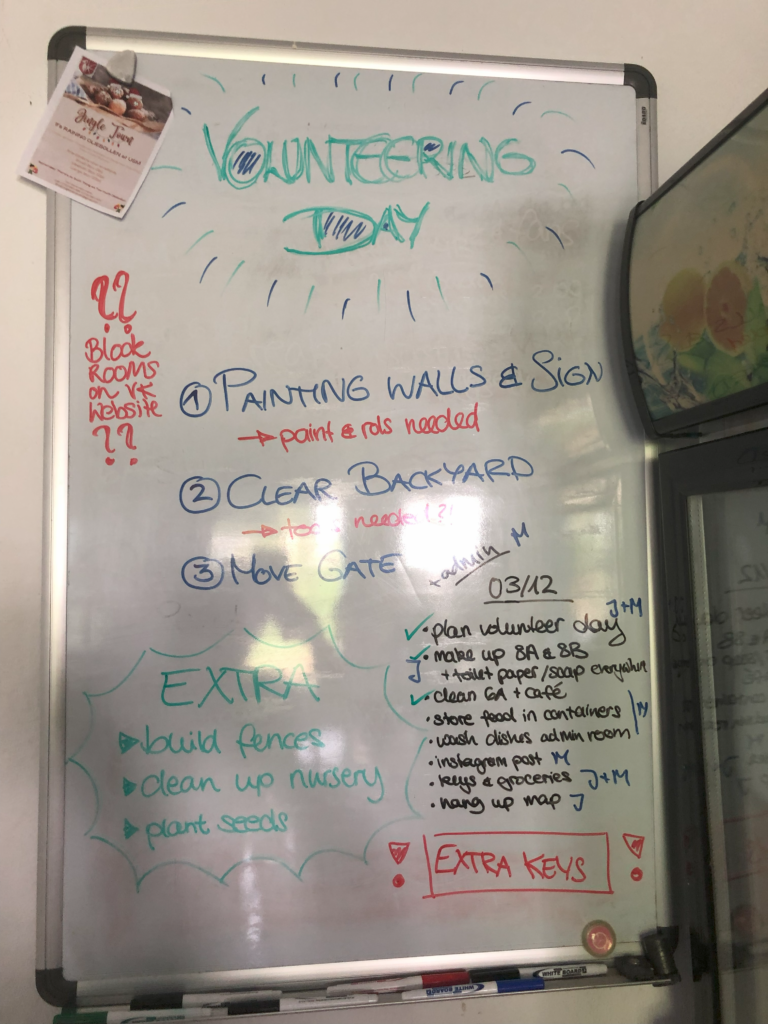 Jungle Town
VOLUNTEERING
DAY
??
Block
ROOMS
on
Website
??
① PAINTING WALLS & SIGN
→ paint & rols needed
② CLEAR BACKYARD
→ needed?!
③ MOVE GATE
+ admin M
03/12
✓ • plan volunteer day J+M
✓ • make up 8A & 8B
J + toilet paper/soap everywhere
✓ • clean 6A + café
• store food in containers
• wash dishes admin room M
• instagram post M
• keys & groceries J+M
• hang up map J
EXTRA
▶ build fences
▶ clean up nursery
▶ plant seeds
! EXTRA KEYS !
WHITE BOARD
WHITE BOARD